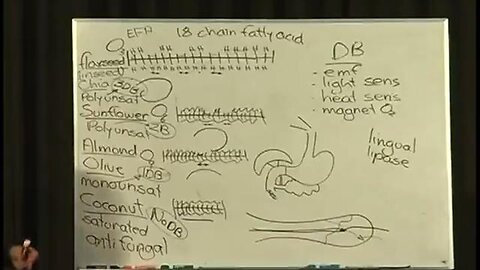 EFA 18 chain fatty acid
H H H H H H H H H H H H
O3
flaxseed
linseed
Chia 3DB
Polyunsat
Sunflower O6
Polyunsat 2B
Almond O9
Olive 1DB
monounsat
Coconut NoDB
saturated
antifungal
DB
- emf
- light sens
- heat sens
- magnet O2
lingual
lipase